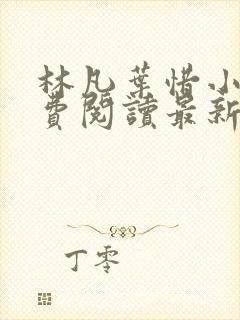 林凡葉惜小
費閱讀最新
丁零